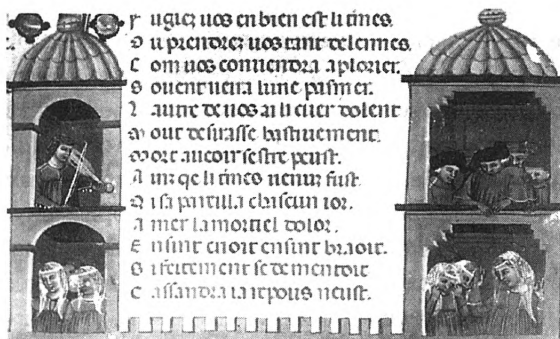 F ugiez uos en bien est li tines.
O u prendrez uos tant de lermes.
C om uos conuendra a plorer.
S ouent uerra lune pasmer.
L autre de uos ai li cuer dolent
M out desirasse hastiuement.
M ort auoir se estre peust.
A inz qe li tines uenuz fust.
Q i sapareilla chascun ior.
A mer la mortiel dolor.
E nsint crioit ensint braoit.
S i feitement se dementoit
C assandra ia repous neust.